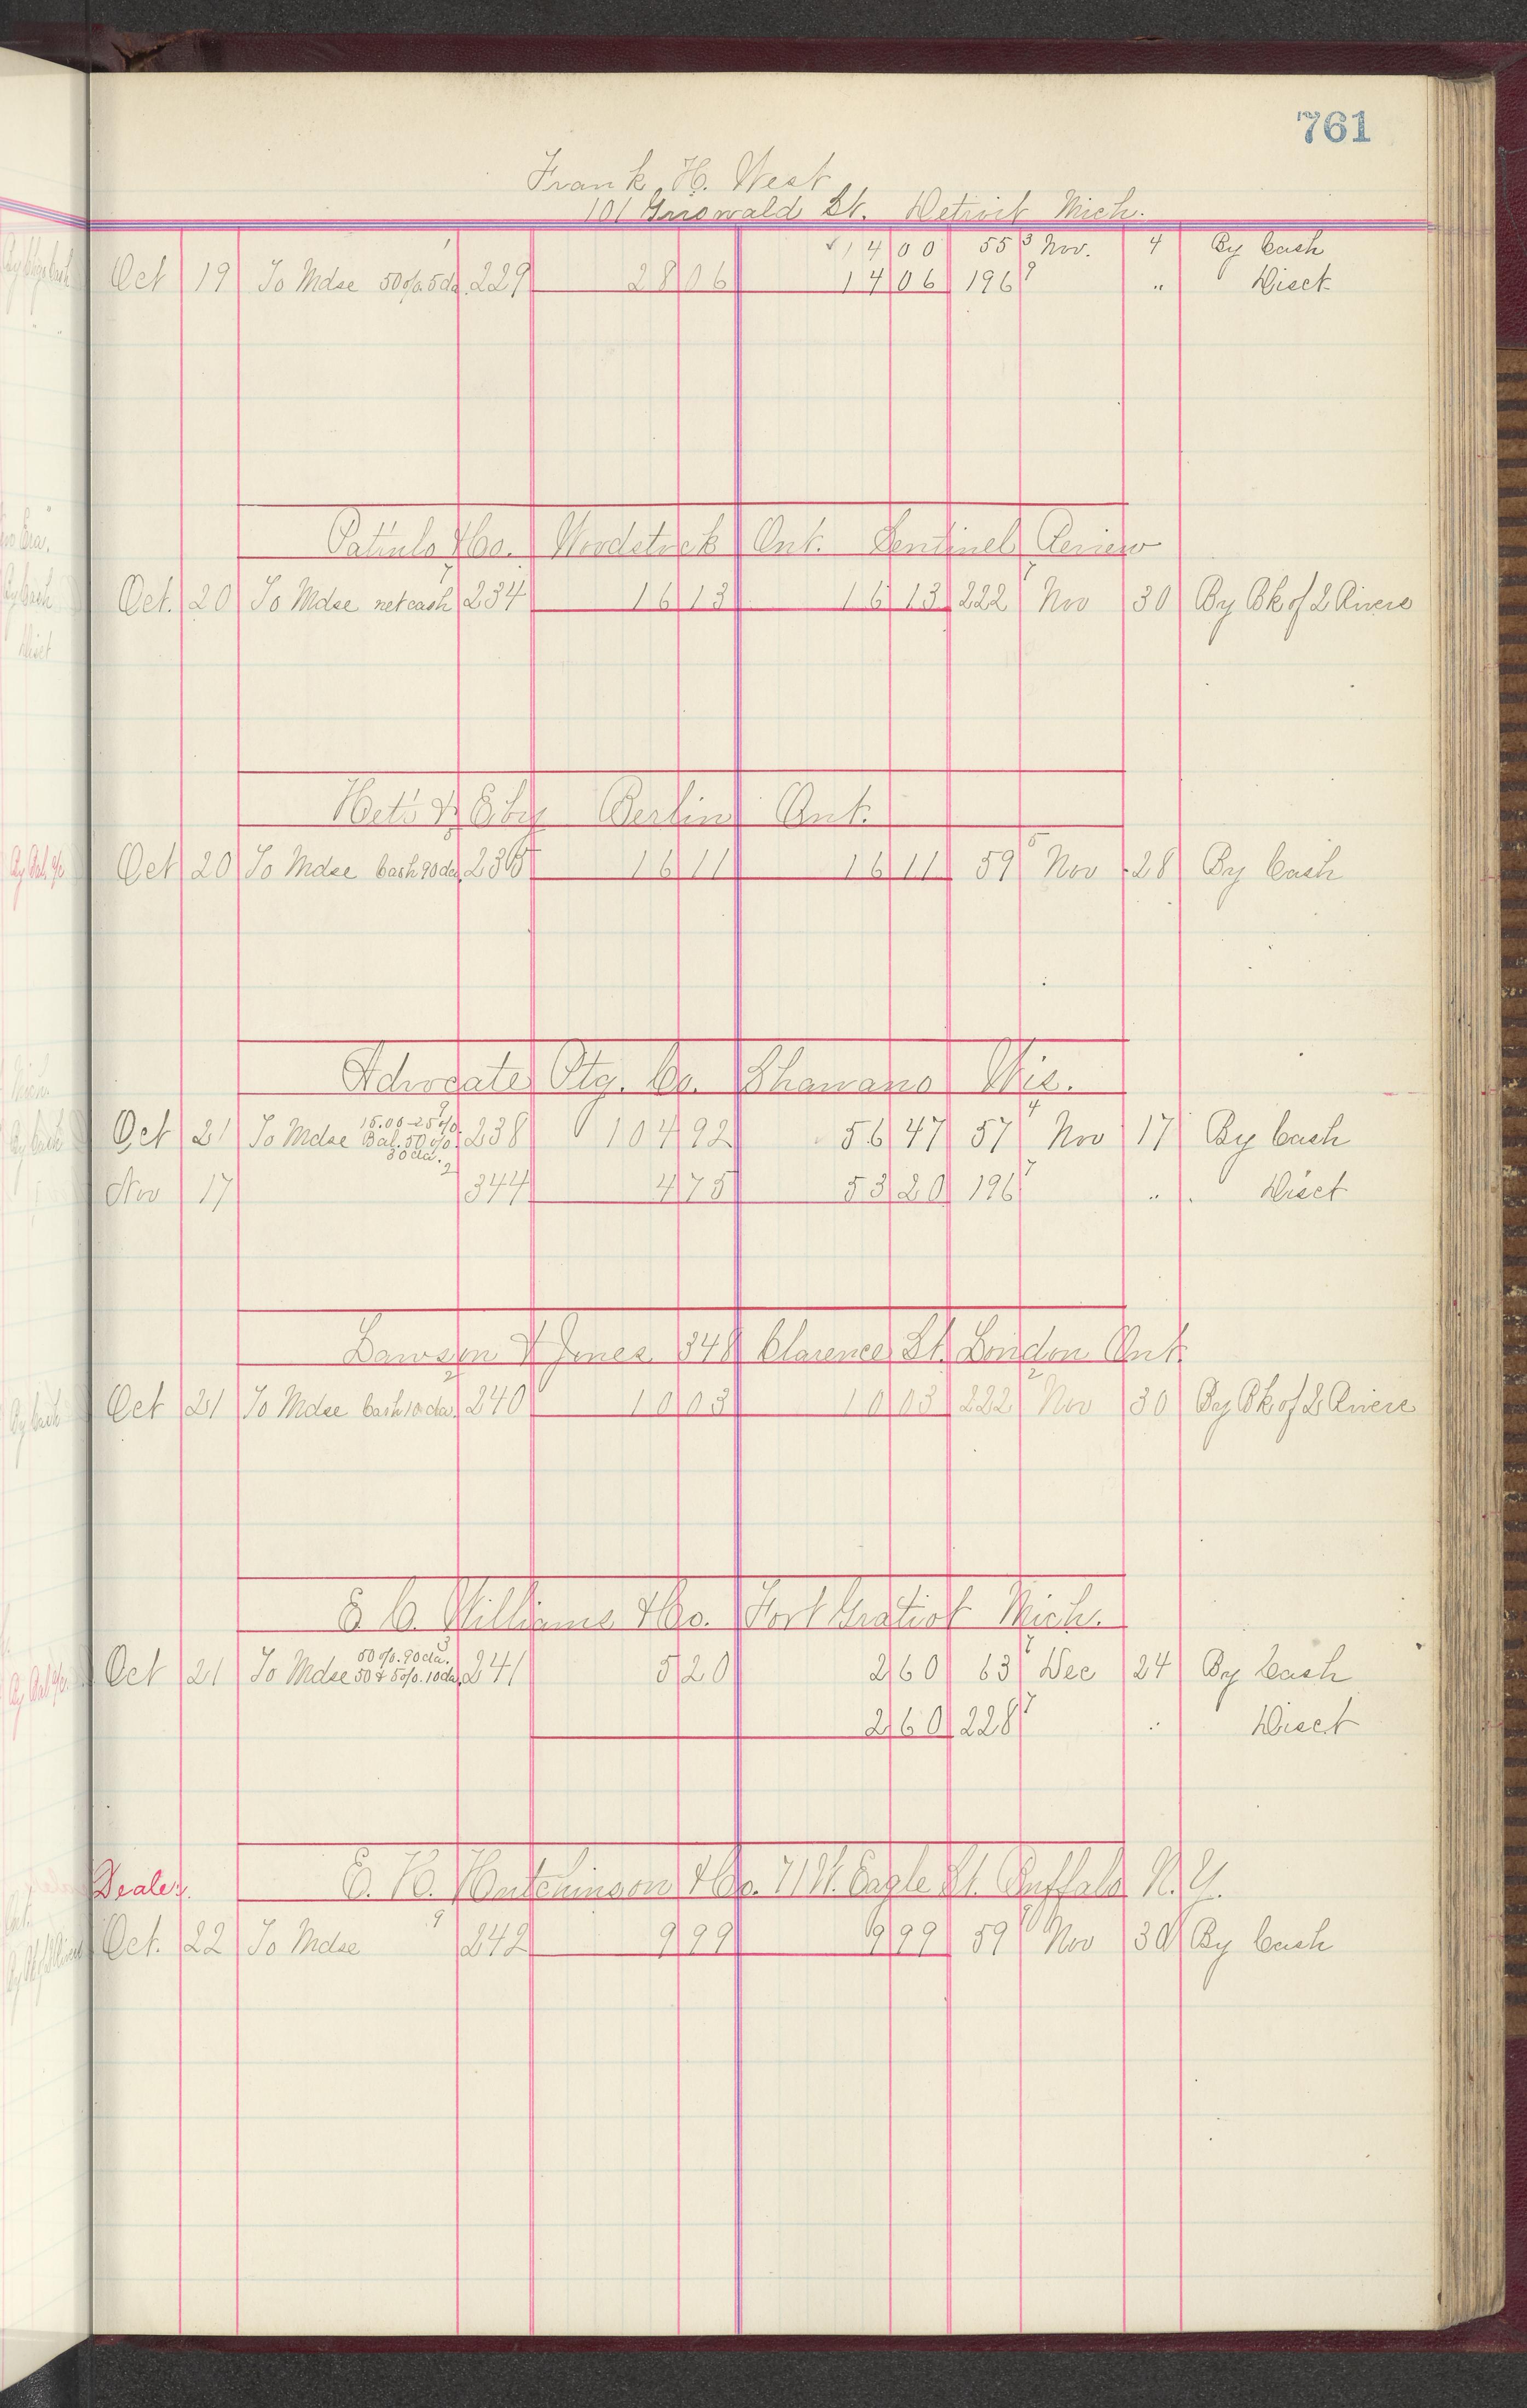 761
Frank H. West
101 Griswald St. Detroit Mich.
14 00 55 3 Nov. 4 By Cash
Oct 19 To Mdse 50%. 5 da. 1 229 28 06 14 06 196 9 " Disct
Patulo & Co. Woodstock Ont. Sentinel Review
Oct. 20 To Mdse net cash 7 234 16 13 16 13 222 7 Nov 30 By Bk of 2 Rivers
& Eby Berlin Ont.
Oct 20 To Mdse Cash 90 da. 16 11 16 11 59 5 Nov 28 By Cash
Advocate Ptg. Co. Shawano Wis.
Oct 21 To Mdse 15.00 - 25% Bal. 50% 30 da. 238 104 92 56 47 57 4 Nov 17 By Cash
Nov 17 2 344 4 75 53 20 196 7 " Disct
Lawson & Jones 348 Clarence St. London Ont.
Oct 21 To Mdse Cash 10 da. 2 240 10 03 10 03 222 2 Nov 30 By Bk of 2 Rivers
E. C. Williams & Co. Fort Gratiot Mich.
Oct 21 To Mdse 50%. 90 da. 50 & 5%. 10 da. 3 241 5 20 2 60 63 Dec 24 By Cash
2 60 228 7 " Disct
Dealer.
E. H. Hutchinson & Co. 71 W. Eagle St. Buffalo N. Y.
Oct. 22 To Mdse 9 242 9 99 9 99 59 Nov 30 By Cash